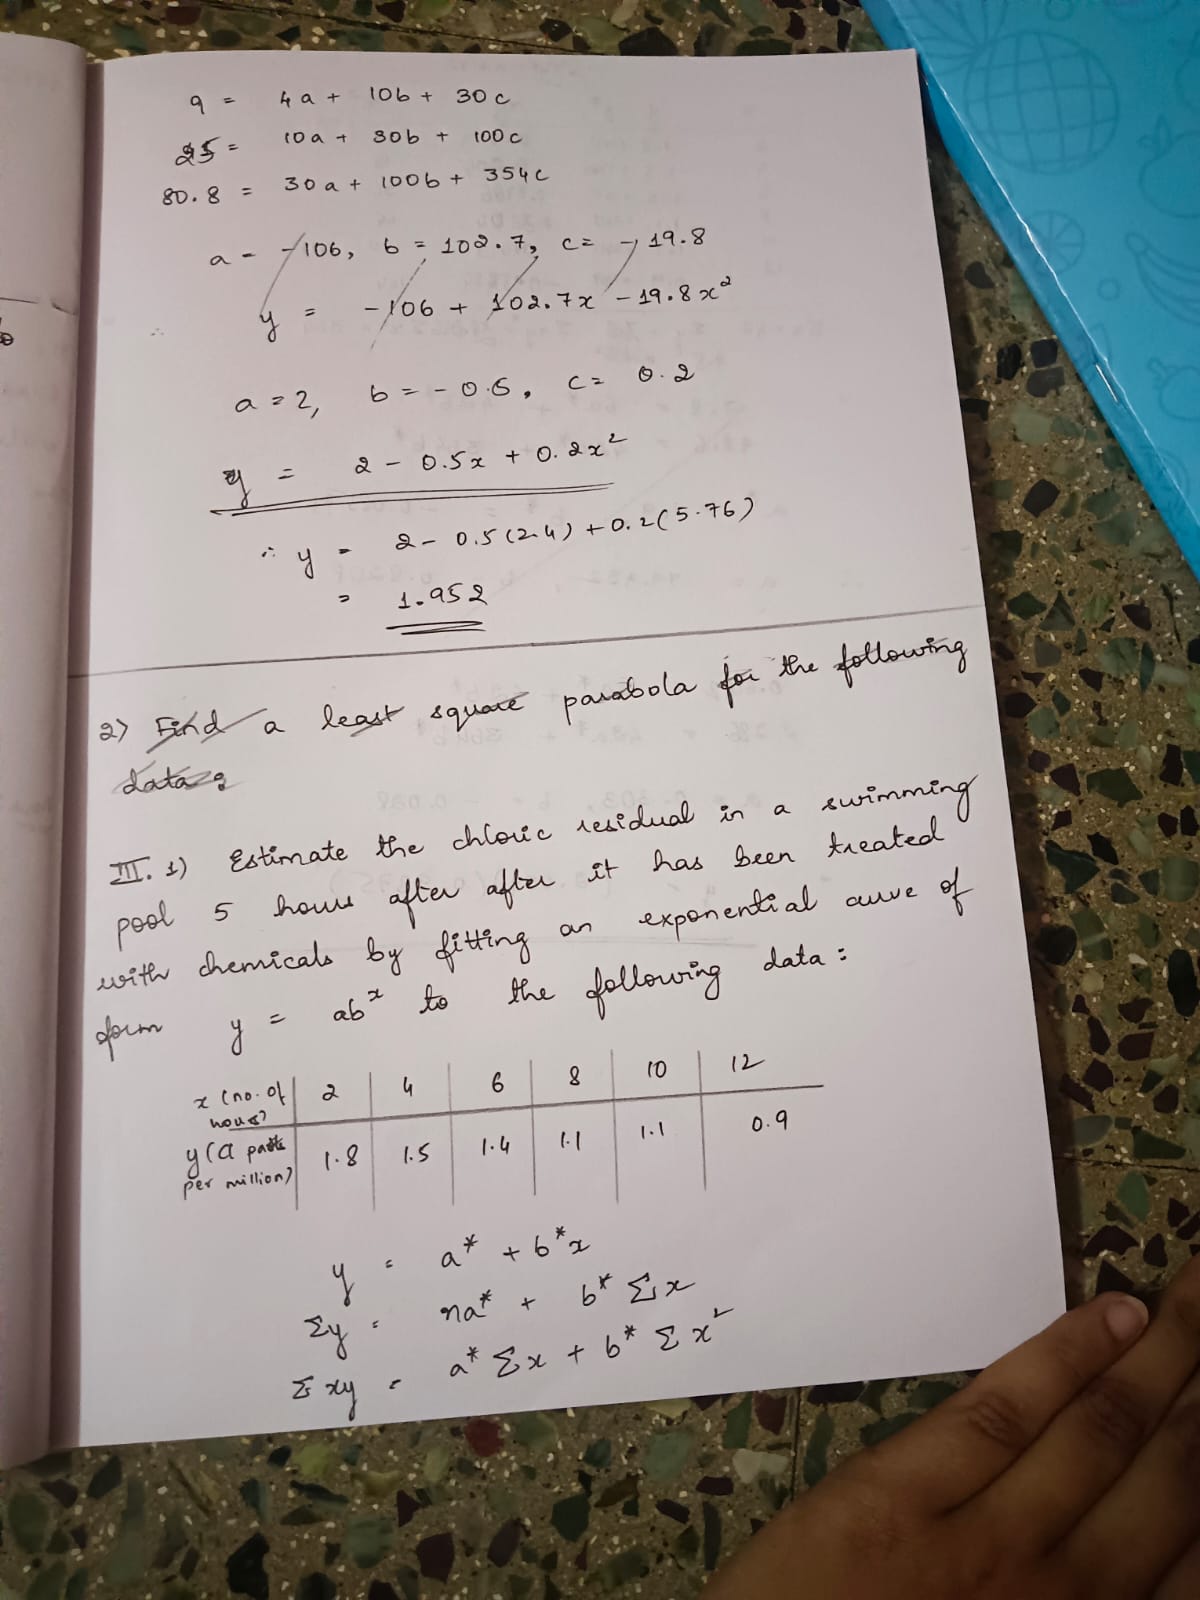 9 = 4a + 10b + 30c
25 = 10a + 30b + 100c
80.8 = 30a + 100b + 354c
a = -106, b = 102.7, c = -19.8
∴ y = -106 + 102.7x - 19.8x²
a = 2, b = -0.5, c = 0.2
y = 2 - 0.5x + 0.2x²
∴ y = 2 - 0.5(2.4) + 0.2(5.76)
= 1.952
2) Find a least square parabola for the following
data:
III. 1) Estimate the chloric residual in a swimming
pool 5 hours after after it has been treated
with chemicals by fitting an exponential curve of
form y = abˣ to the following data:
x (no. of hours) 2 4 6 8 10 12
y (Cl parts per million) 1.8 1.5 1.4 1.1 1.1 0.9
y = a* + b*x
Σy = na* + b* Σx
Σxy = a* Σx + b* Σx²